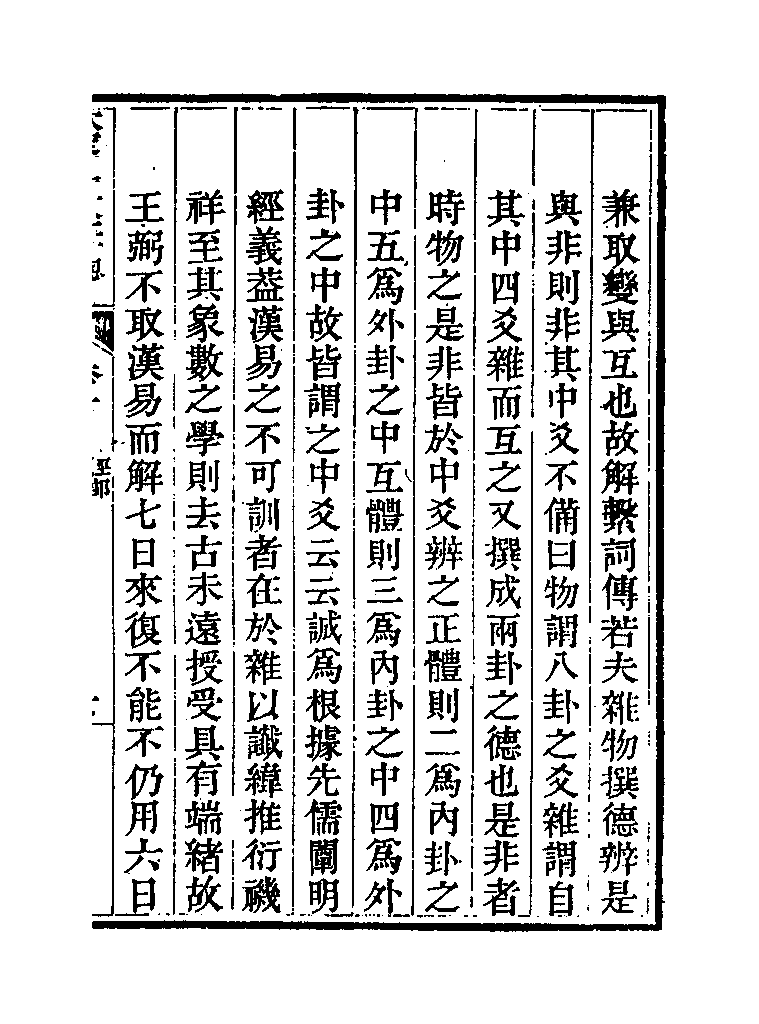 兼取變與互也故解繫詞傳若夫雜物撰德辨是
與非則非其中爻不備曰物謂八卦之爻雜謂自
其中四爻雜而互之又撰成兩卦之德也是非者
時物之是非皆於中爻辨之正體則二爲內卦之
中五爲外卦之中互體則三爲內卦之中四爲外
卦之中故皆謂之中爻云云誠爲根據先儒闡明
經義葢漢易之不可訓者在於雜以讖緯推衍禨
祥至其象數之學則去古未遠授受具有端緒故
王弼不取漢易而解七日來復不能不仍用六日